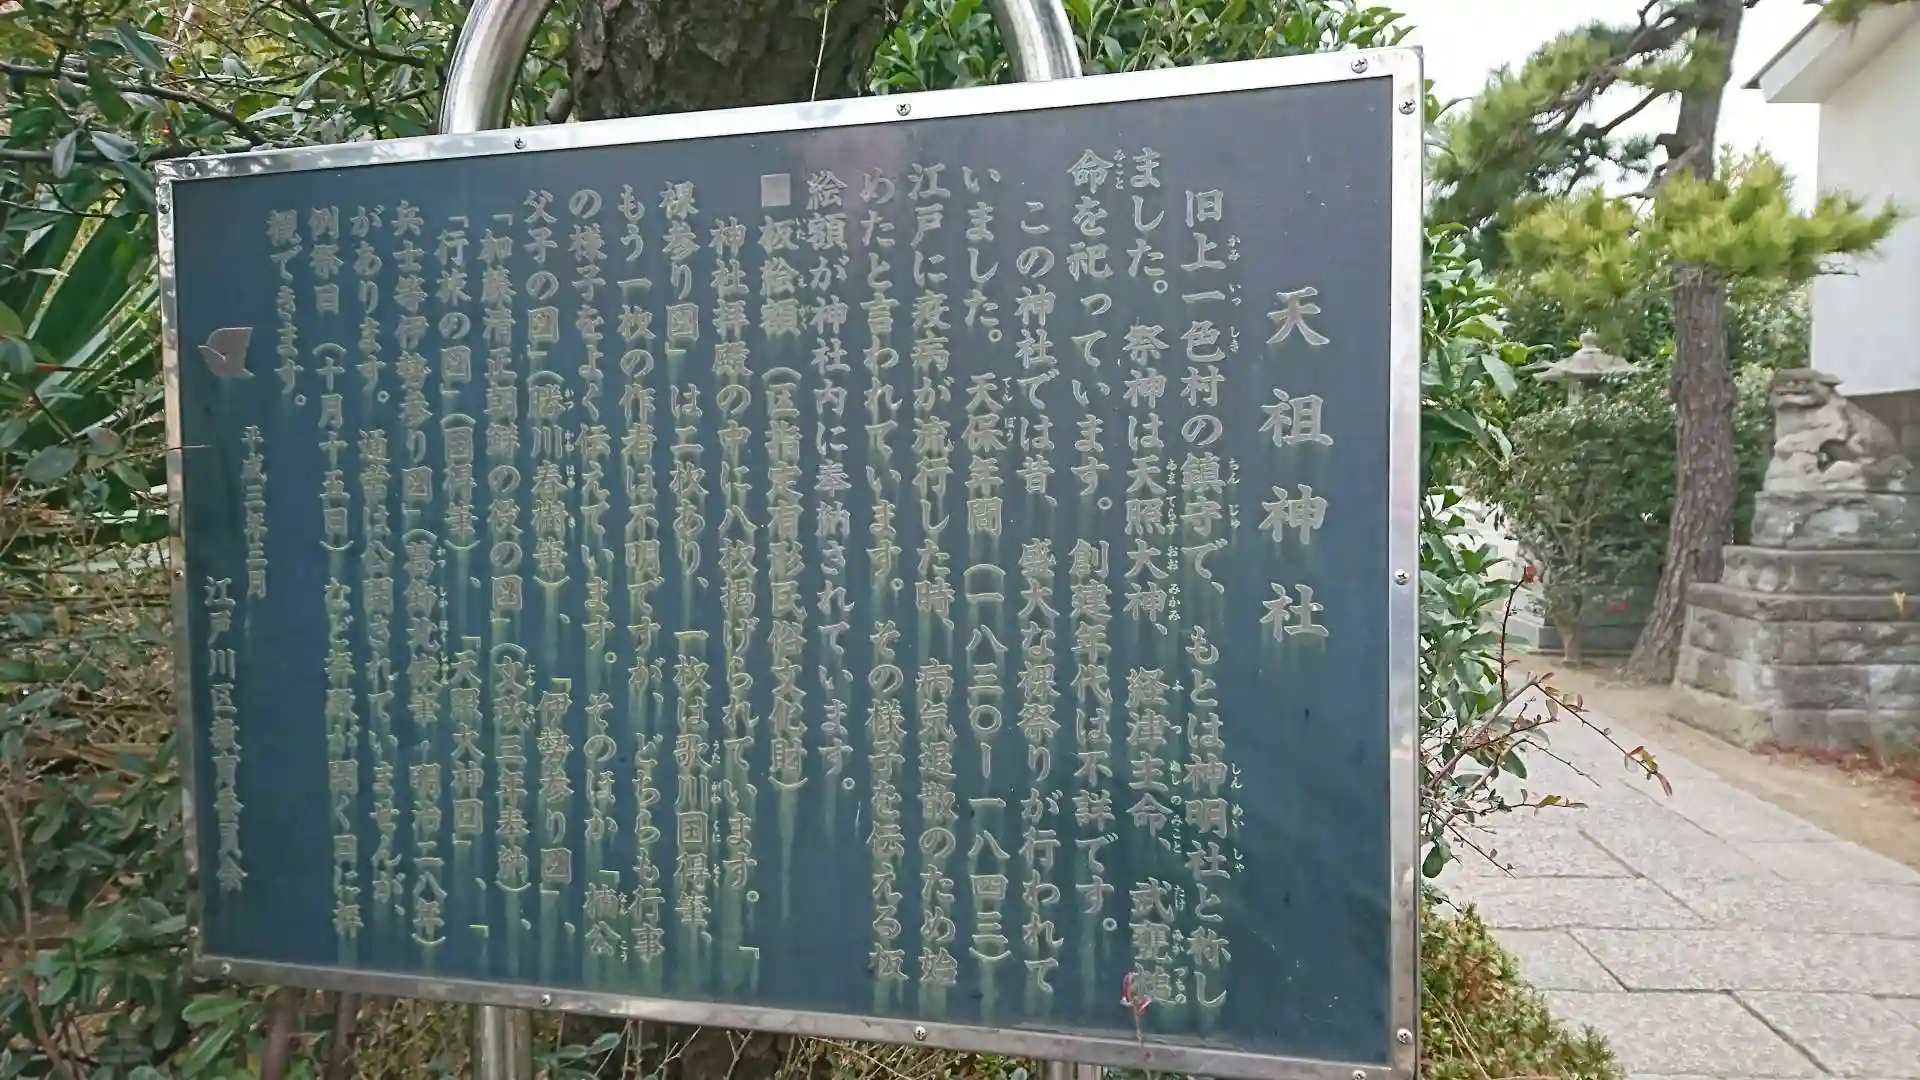 天祖神社
旧上一色村の鎮守で、もとは神明社と称し
ました。祭神は天照大神、経津主命、武甕槌
命を祀っています。創建年代は不詳です。
この神社では昔、盛大な裸祭りが行われて
いました。天保年間（一八三〇ー一八四三）
江戸に疫病が流行した時、病気退散のため始
めたと言われています。その様子を伝える板
絵額が神社内に奉納されています。
■板絵額（区指定有形民俗文化財）
神社拝殿の中に八枚掲げられています。「
裸参り図」は二枚あり、一枚は歌川国得筆、
もう一枚の作者は不明ですが、どちらも行事
の様子をよく伝えています。そのほか「楠公
父子の図」（勝川春樹筆）、「伊勢参り図」、
「加藤清正朝鮮の役の図」（文政三年奉納）、
「行来の図」（国得筆）、「天照大神図」、「
兵士等伊勢参り図」（葛飾北俊筆・明治二八年）
があります。通常は公開されていませんが、
例祭日（十月十五日）など拝殿が開く日に拝
観できます。
平成二年三月
江戸川区教育委員会